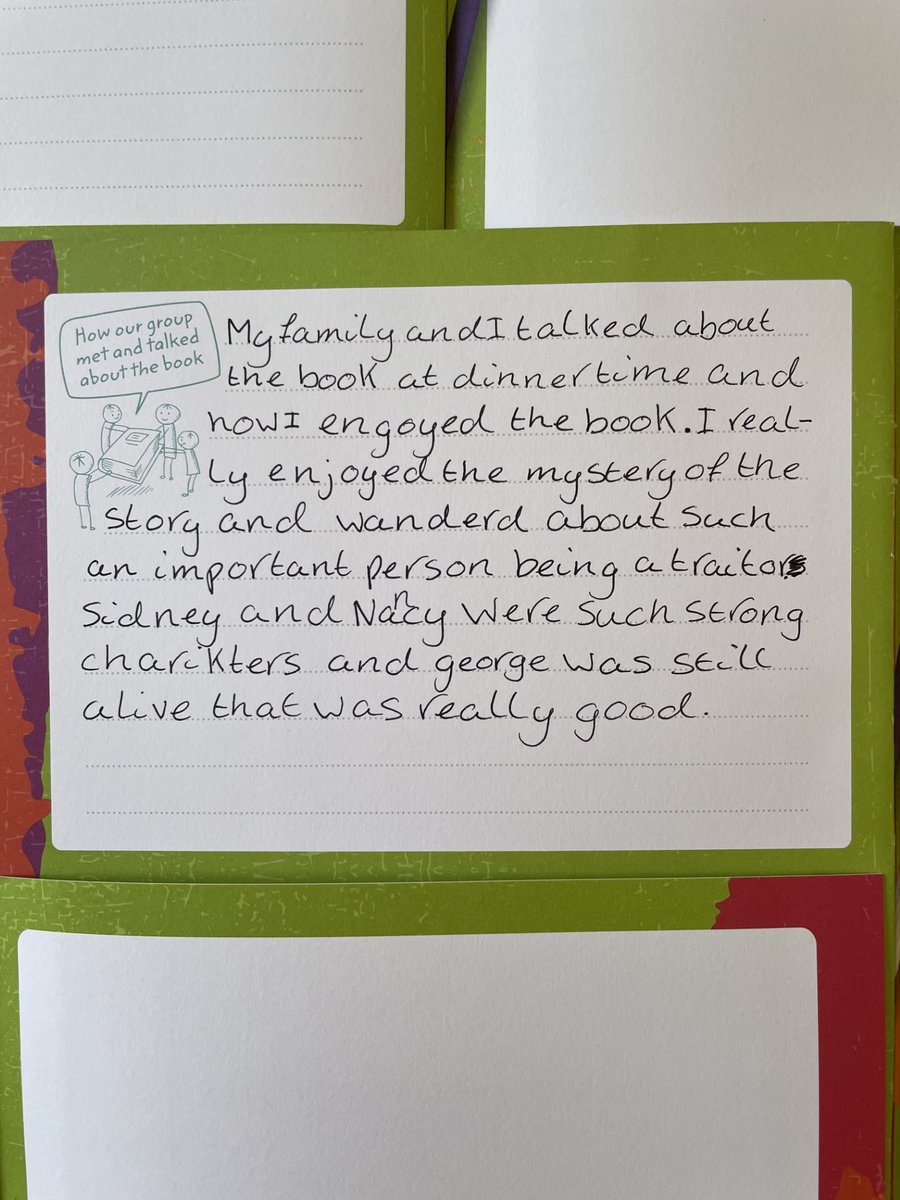 How our group
met and talked
about the book
My family and I talked about
the book at dinner time and
how I engoyed the book. I real-
ly enjoyed the mystery of the
story and wanderd about such
an important person being a traitor
Sidney and Nancy were such strong
charikters and george was still
alive that was really good.